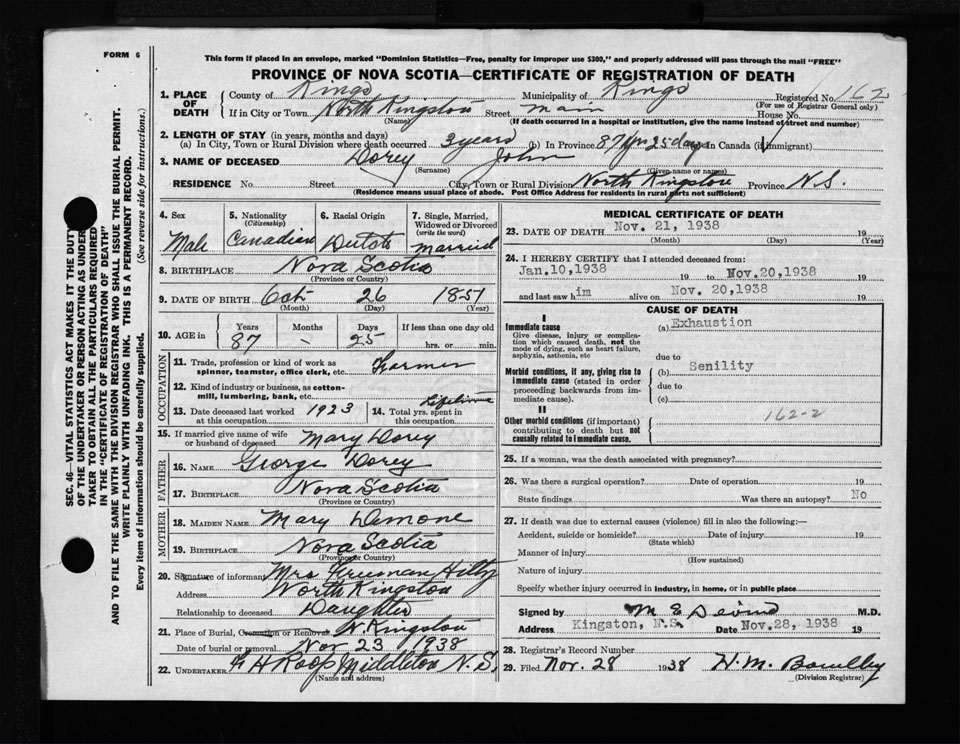 FORM 6
This form if placed in an envelope, marked "Dominion Statistics—Free, penalty for improper use $300," and properly addressed will pass through the mail "FREE"
PROVINCE OF NOVA SCOTIA—CERTIFICATE OF REGISTRATION OF DEATH
1. PLACE OF DEATH County of Kings Municipality of Kings Registered No. 162
(For use of Registrar General only)
If in City or Town North Kingston Street Main House No.
(Name) (If death occurred in a hospital or institution, give the name instead of street and number)
2. LENGTH OF STAY (in years, months and days)
(a) In City, Town or Rural Division where death occurred 3 years (b) In Province 87 yrs 25 days (c) In Canada (if immigrant)
3. NAME OF DECEASED Dorey John
(Surname) (Given name or names)
RESIDENCE No. Street City, Town or Rural Division North Kingston Province N.S.
(Residence means usual place of abode. Post Office Address for residents in rural parts not sufficient)
4. Sex Male
5. Nationality (Citizenship) Canadian
6. Racial Origin Dutch
7. Single, Married, Widowed or Divorced (write the word) Married
8. BIRTHPLACE Nova Scotia
(Province or Country)
9. DATE OF BIRTH Oct 26 1851
(Month) (Day) (Year)
10. AGE in Years Months Days If less than one day old
87 - 25 hrs. or min.
OCCUPATION
11. Trade, profession or kind of work as spinner, teamster, office clerk, etc. Farmer
12. Kind of industry or business, as cotton-mill, lumbering, bank, etc.
13. Date deceased last worked at this occupation 1923
14. Total yrs. spent in this occupation Lifetime
15. If married give name of wife or husband of deceased Mary Dorey
FATHER
16. NAME George Dorey
17. BIRTHPLACE Nova Scotia
(Province or Country)
MOTHER
18. MAIDEN NAME Mary Dimone
19. BIRTHPLACE Nova Scotia
(Province or Country)
20. Signature of informant Mrs Freeman Hilty
Address North Kingston
Relationship to deceased Daughter
21. Place of Burial, Cremation or Removal N. Kingston
Date of burial or removal Nov 23 1938
22. UNDERTAKER F H Roop Middleton N.S.
(Name and address)
MEDICAL CERTIFICATE OF DEATH
23. DATE OF DEATH Nov. 21, 1938 19
(Month) (Day) (Year)
24. I HEREBY CERTIFY that I attended deceased from:
Jan.10,1938 19 to Nov.20,1938 19
and last saw him alive on Nov. 20,1938 19
CAUSE OF DEATH
I
Immediate cause (a) Exhaustion
Give disease, injury or complication which caused death, not the mode of dying, such as heart failure, asphyxia, asthenia, etc
due to
Morbid conditions, if any, giving rise to immediate cause (stated in order proceeding backwards from immediate cause). (b) Senility
due to
(c)
II
Other morbid conditions (if important) contributing to death but not causally related to immediate cause. 162-2
25. If a woman, was the death associated with pregnancy?
26. Was there a surgical operation? Date of operation 19
State findings Was there an autopsy? No
27. If death was due to external causes (violence) fill in also the following:—
Accident, suicide or homicide? Date of injury 19
(State which)
Manner of injury
(How sustained)
Nature of injury
Specify whether injury occurred in industry, in home, or in public place
Signed by M E M.D.
Address Kingston, N.S. Date Nov.28, 1938 19
28. Registrar's Record Number
29. Filed Nov. 28 1938 H. M.
(Division Registrar)
SEC. 46—VITAL STATISTICS ACT MAKES IT THE DUTY
OF THE UNDERTAKER OR PERSON ACTING AS UNDERTAKER TO OBTAIN ALL THE PARTICULARS REQUIRED
IN THE "CERTIFICATE OF REGISTRATION OF DEATH"
AND TO FILE THE SAME WITH THE DIVISION REGISTRAR WHO SHALL ISSUE THE BURIAL PERMIT.
WRITE PLAINLY WITH UNFADING INK. THIS IS A PERMANENT RECORD.
Every item of information should be carefully supplied. (See reverse side for instructions.)